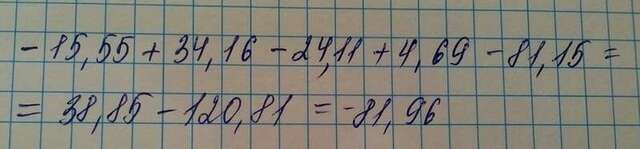 - 15,55 + 34,16 - 24,11 + 4,69 - 81,15 =
= 38,85 - 120,81 = -81,96